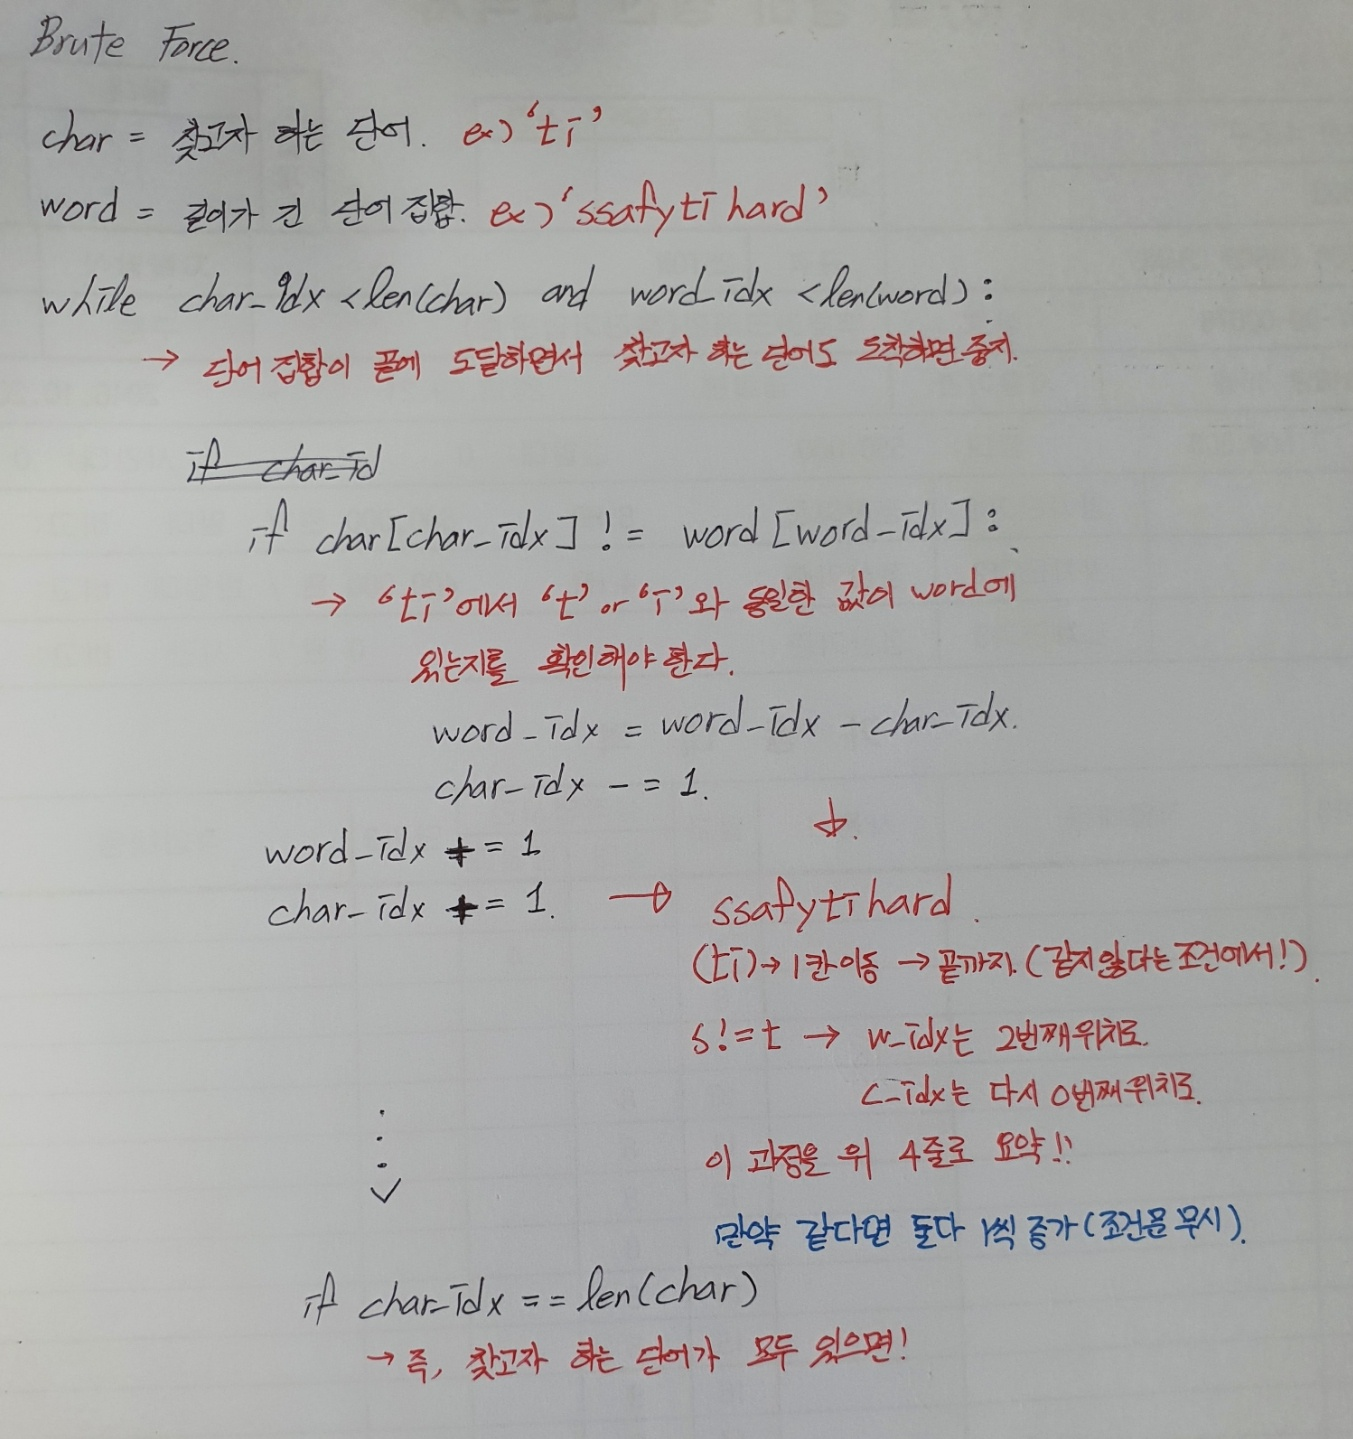 Brute Force.
char = 찾고자 하는 단어. ex) 'ti'
word = 길이가 긴 단어 집합. ex) 'ssafytihard'
while char_idx < len(char) and word_idx < len(word) :
→ 단어 집합이 끝에 도달하면서 찾고자 하는 단어도 도착하면 중지.
if char_id
if char[char_idx] != word[word_idx] :
→ 'ti'에서 't' or 'i'와 동일한 값이 word에
있는지를 확인해야 한다.
word_idx = word_idx - char_idx.
char_idx -= 1.
↓.
word_idx += 1
char_idx += 1. → ssafytihard.
(ti) → 1칸 이동 → 끝까지. (같지 않다는 조건에서!).
s != t → w_idx는 2번째 위치로.
c_idx는 다시 0번째 위치로.
이 과정을 위 4줄로 요약!!
만약 같다면 둘다 1씩 증가 (조건문 무시).
if char_idx == len(char)
→ 즉, 찾고자 하는 단어가 모두 있으면!